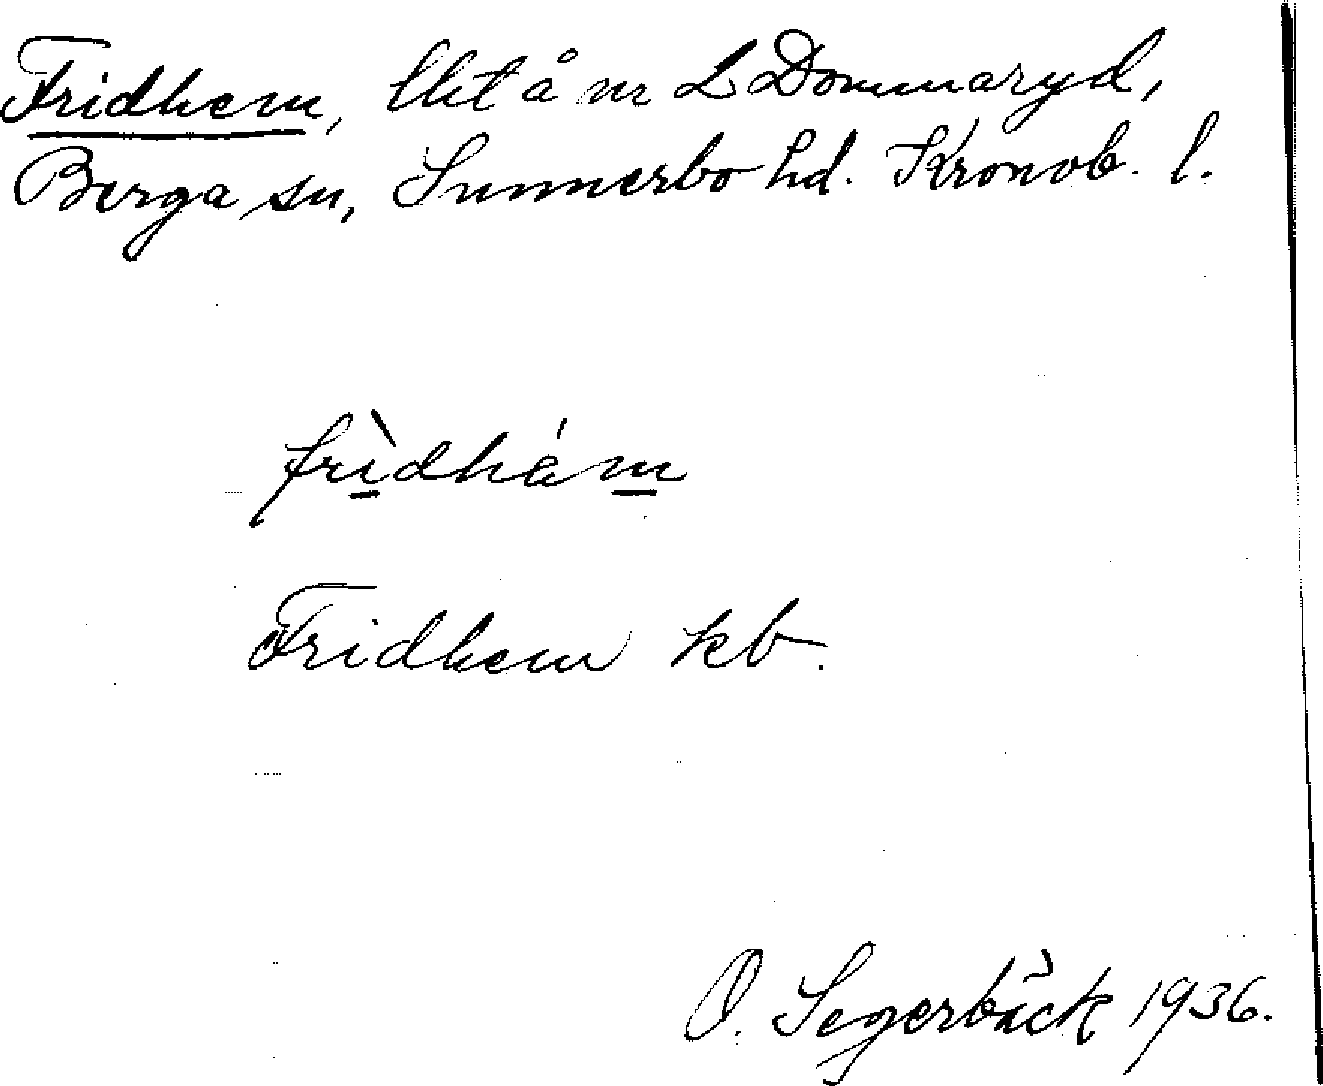 Fridhem, lht å nr 2 Dommaryd,
Berga sn, Sunnerbo hd. Kronob. l.
frìdhám
Fridhem kb.
O. Segerbäck 1936.